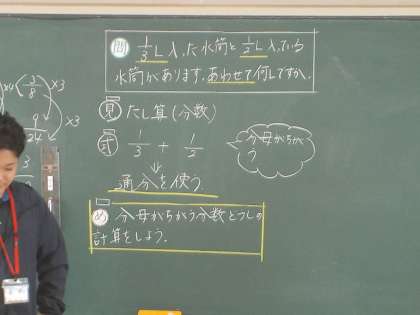 問 1/3L入った水筒と1/2L入っている
水筒があります。あわせて何Lですか。
×4 (3/8) ×3
9/24 ×3
見 たし算(分数)
式 1/3 + 1/2
分母がちが
う
↓
通分を使う
め 分母がちがう分数どうしの
計算をしよう。